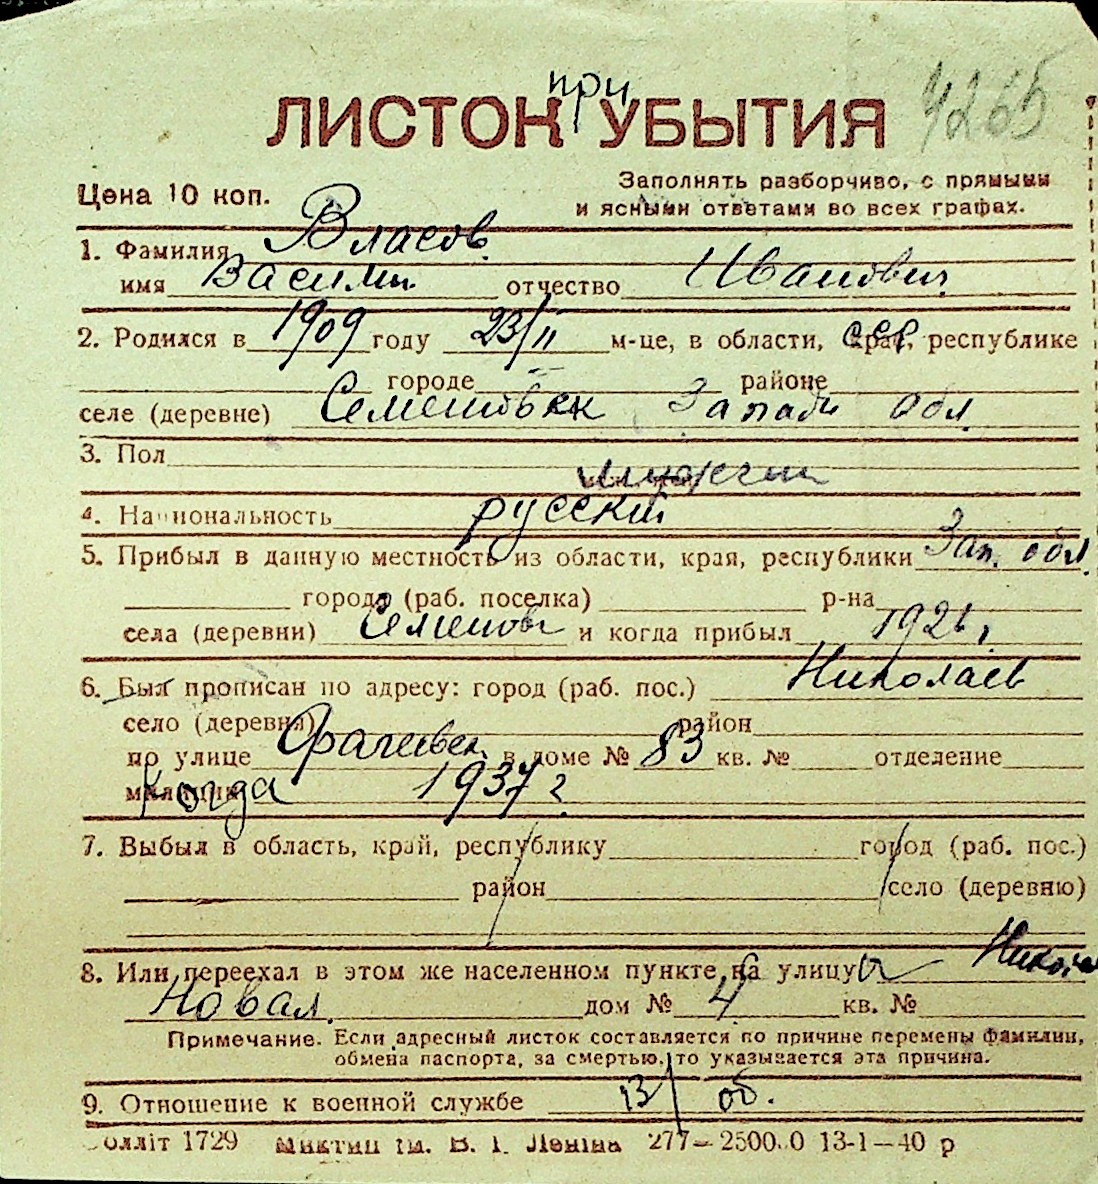 при
ЛИСТОК УБЫТИЯ 4265
Цена 10 коп. Заполнять разборчиво, с прямыми
и ясными ответами во всех графах.
1. Фамилия Власов
имя Василий отчество Иванович
2. Родился в 1909 году 23/II м-це, в области, край, республике
городе районе
селе (деревне) Семеновск Запади обл.
3. Пол мужчин
4. Национальность русский
5. Прибыл в данную местность из области, края, республики Зап. обл.
города (раб. поселка) р-на
села (деревни) Семенов и когда прибыл 192
6. Был прописан по адресу: город (раб. пос.) Николаев
село (деревня) район
по улице в доме № 83 кв. № отделение
милиции Когда 1937 г.
7. Выбыл в область, край, республику город (раб. пос.)
район село (деревню)
8. Или переехал в этом же населенном пункте на улицу Никола
Новая дом № 4 кв. №
Примечание. Если адресный листок составляется по причине перемены фамилии,
обмена паспорта, за смертью, то указывается эта причина.
9. Отношение к военной службе об.
олліт 1729 ім. В. І. Леніна 277—2500.0 13-1—40 р